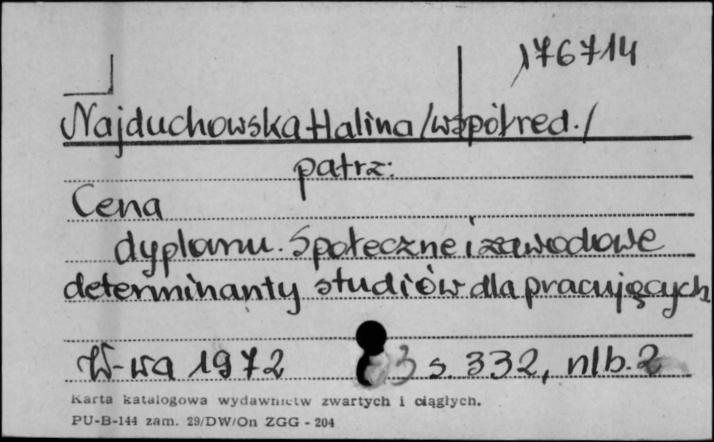 176714
Najduchowska Halina /współred./
patrz:
Cena
dyplomu. Społeczne i zawodowe
determinanty studiów dla pracujących
W-wa 1972 s. 332, nlb. 2
Karta katalogowa wydawnictw zwartych i ciągłych.
PU-B-144 zam. 29/DW/On ZGG - 204